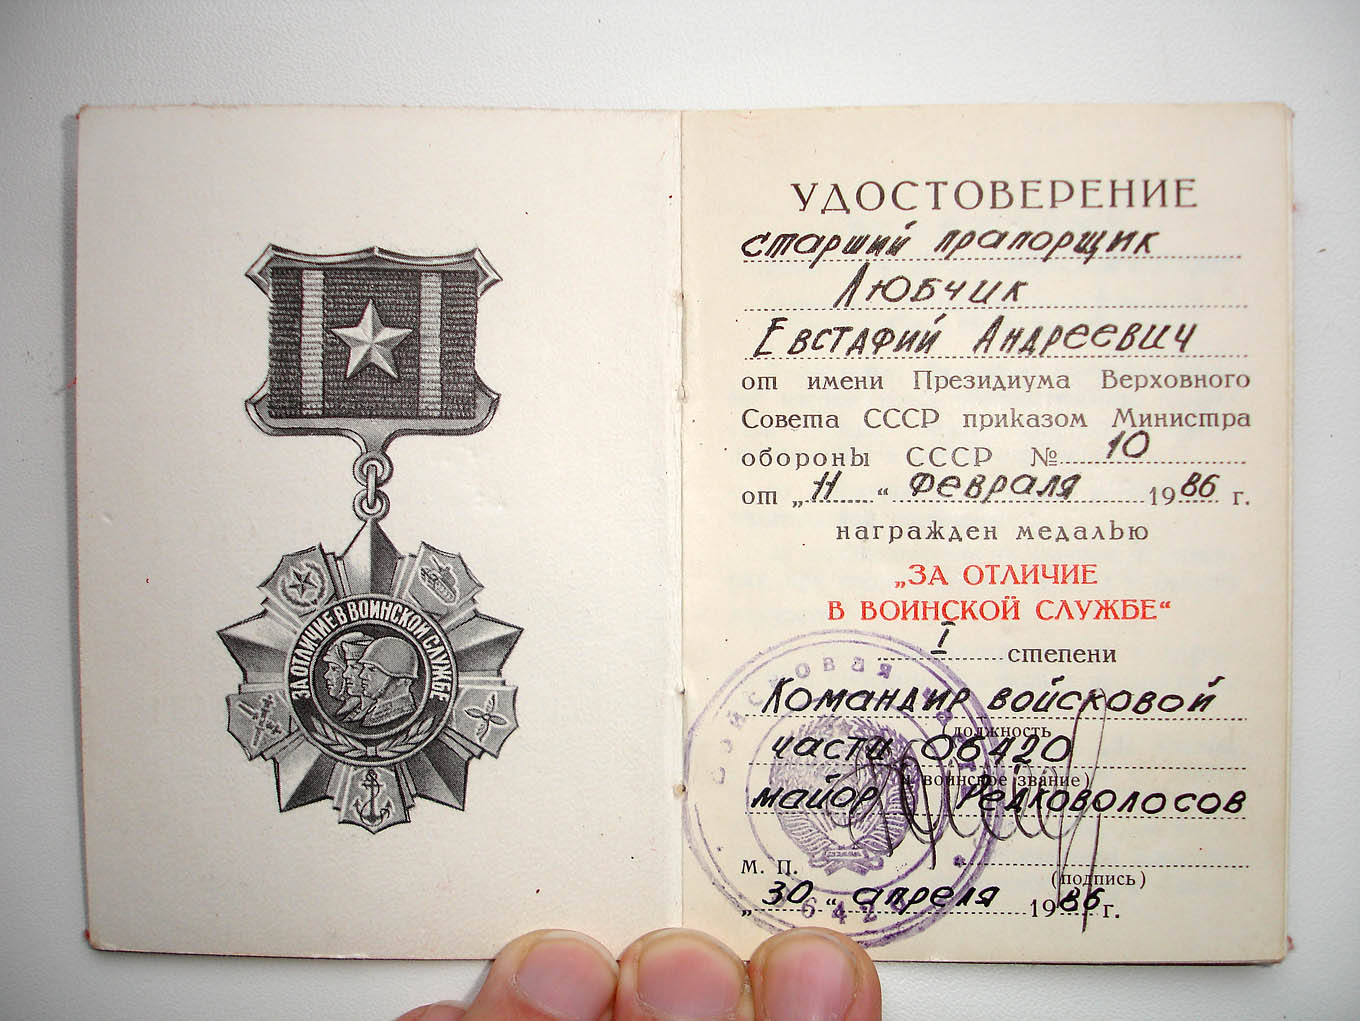 ЗА ОТЛИЧИЕ В ВОИНСКОЙ СЛУЖБЕ
УДОСТОВЕРЕНИЕ
старший прапорщик
Любчик
Евстафий Андреевич
от имени Президиума Верховного
Совета СССР приказом Министра
обороны СССР № 10
от „11“ февраля 1986 г.
награжден медалью
„ЗА ОТЛИЧИЕ
В ВОИНСКОЙ СЛУЖБЕ“
I степени
Командир войсковой
должность
части 06420
и воинское звание)
майор Редковолосов
М. П.
(подпись)
„30“ апреля 1986 г.
ВОЙСКОВАЯ
06420